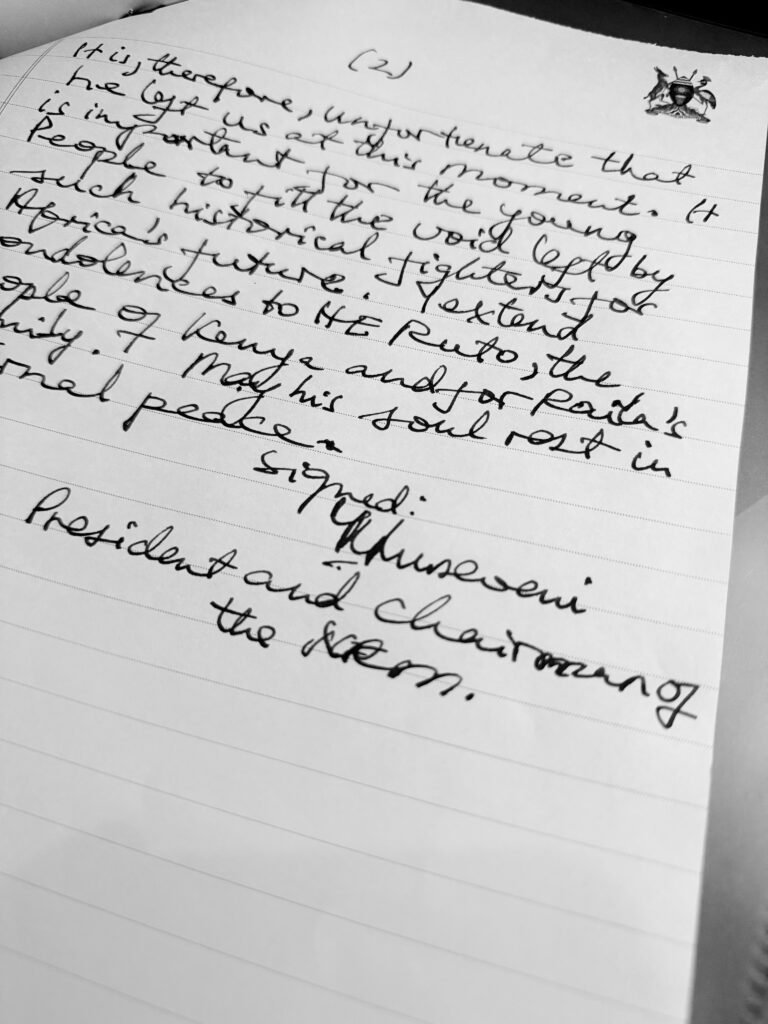 (2)
It is, therefore, unfortunate that
he left us at this moment. It
is important for the young
People to fill the void left by
such historical fighters for
Africa's future. I extend
ondolences to HE Ruto, the
ople of Kenya and/or Raila's
mily. May his soul rest in
rnal peace.
Signed:
Museveni
President and Chairman of
the NRM.